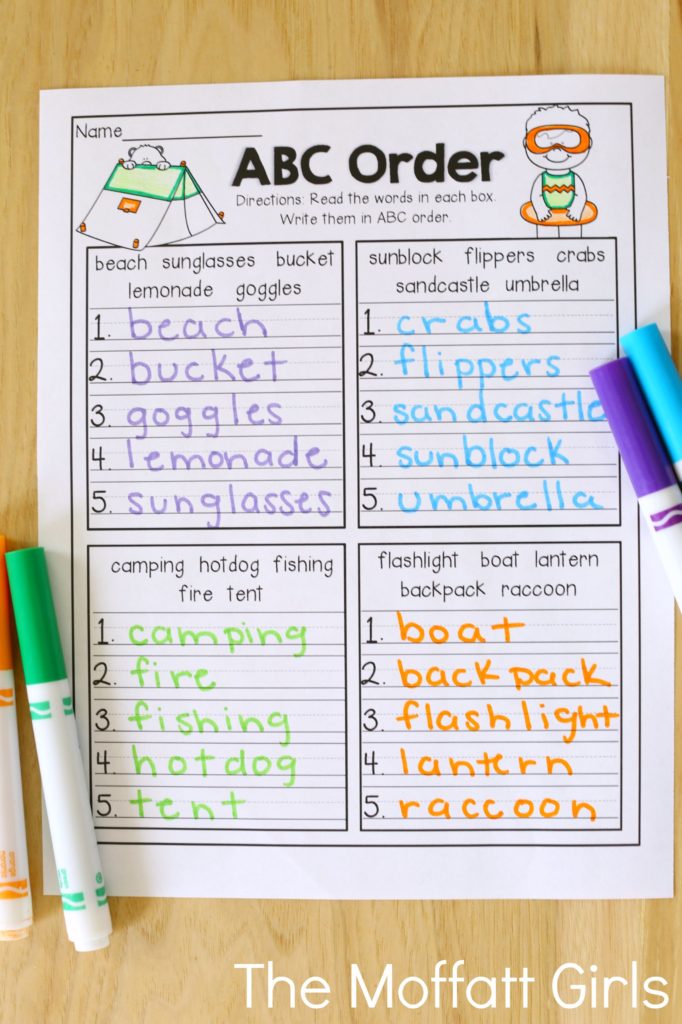 Name
ABC Order
Directions: Read the words in each box.
Write them in ABC order.
beach sunglasses bucket
lemonade goggles
1. beach
2. bucket
3. goggles
4. lemonade
5. sunglasses
sunblock flippers crabs
sandcastle umbrella
1. crabs
2. flippers
3. sandcastle
4. sunblock
5. umbrella
camping hotdog fishing
fire tent
1. camping
2. fire
3. fishing
4. hotdog
5. tent
flashlight boat lantern
backpack raccoon
1. boat
2. backpack
3. flashlight
4. lantern
5. raccoon
The Moffatt Girls